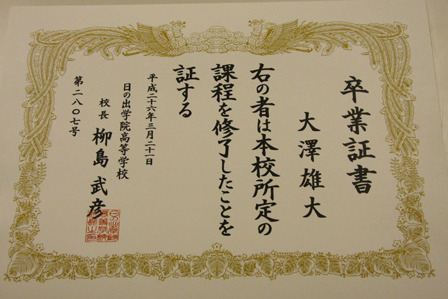 卒業証書
大澤雄大
右の者は本校所定の
課程を修了したことを
証する
平成二十六年三月二十一日
日の出学院高等学校
校長 柳島 武彦
第二八〇七号